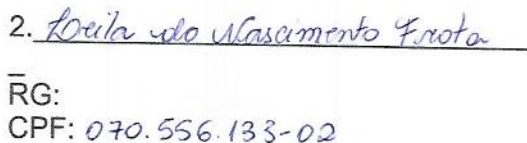 2. Leila do Nascimento Frota
RG:
CPF: 070.556.133-02